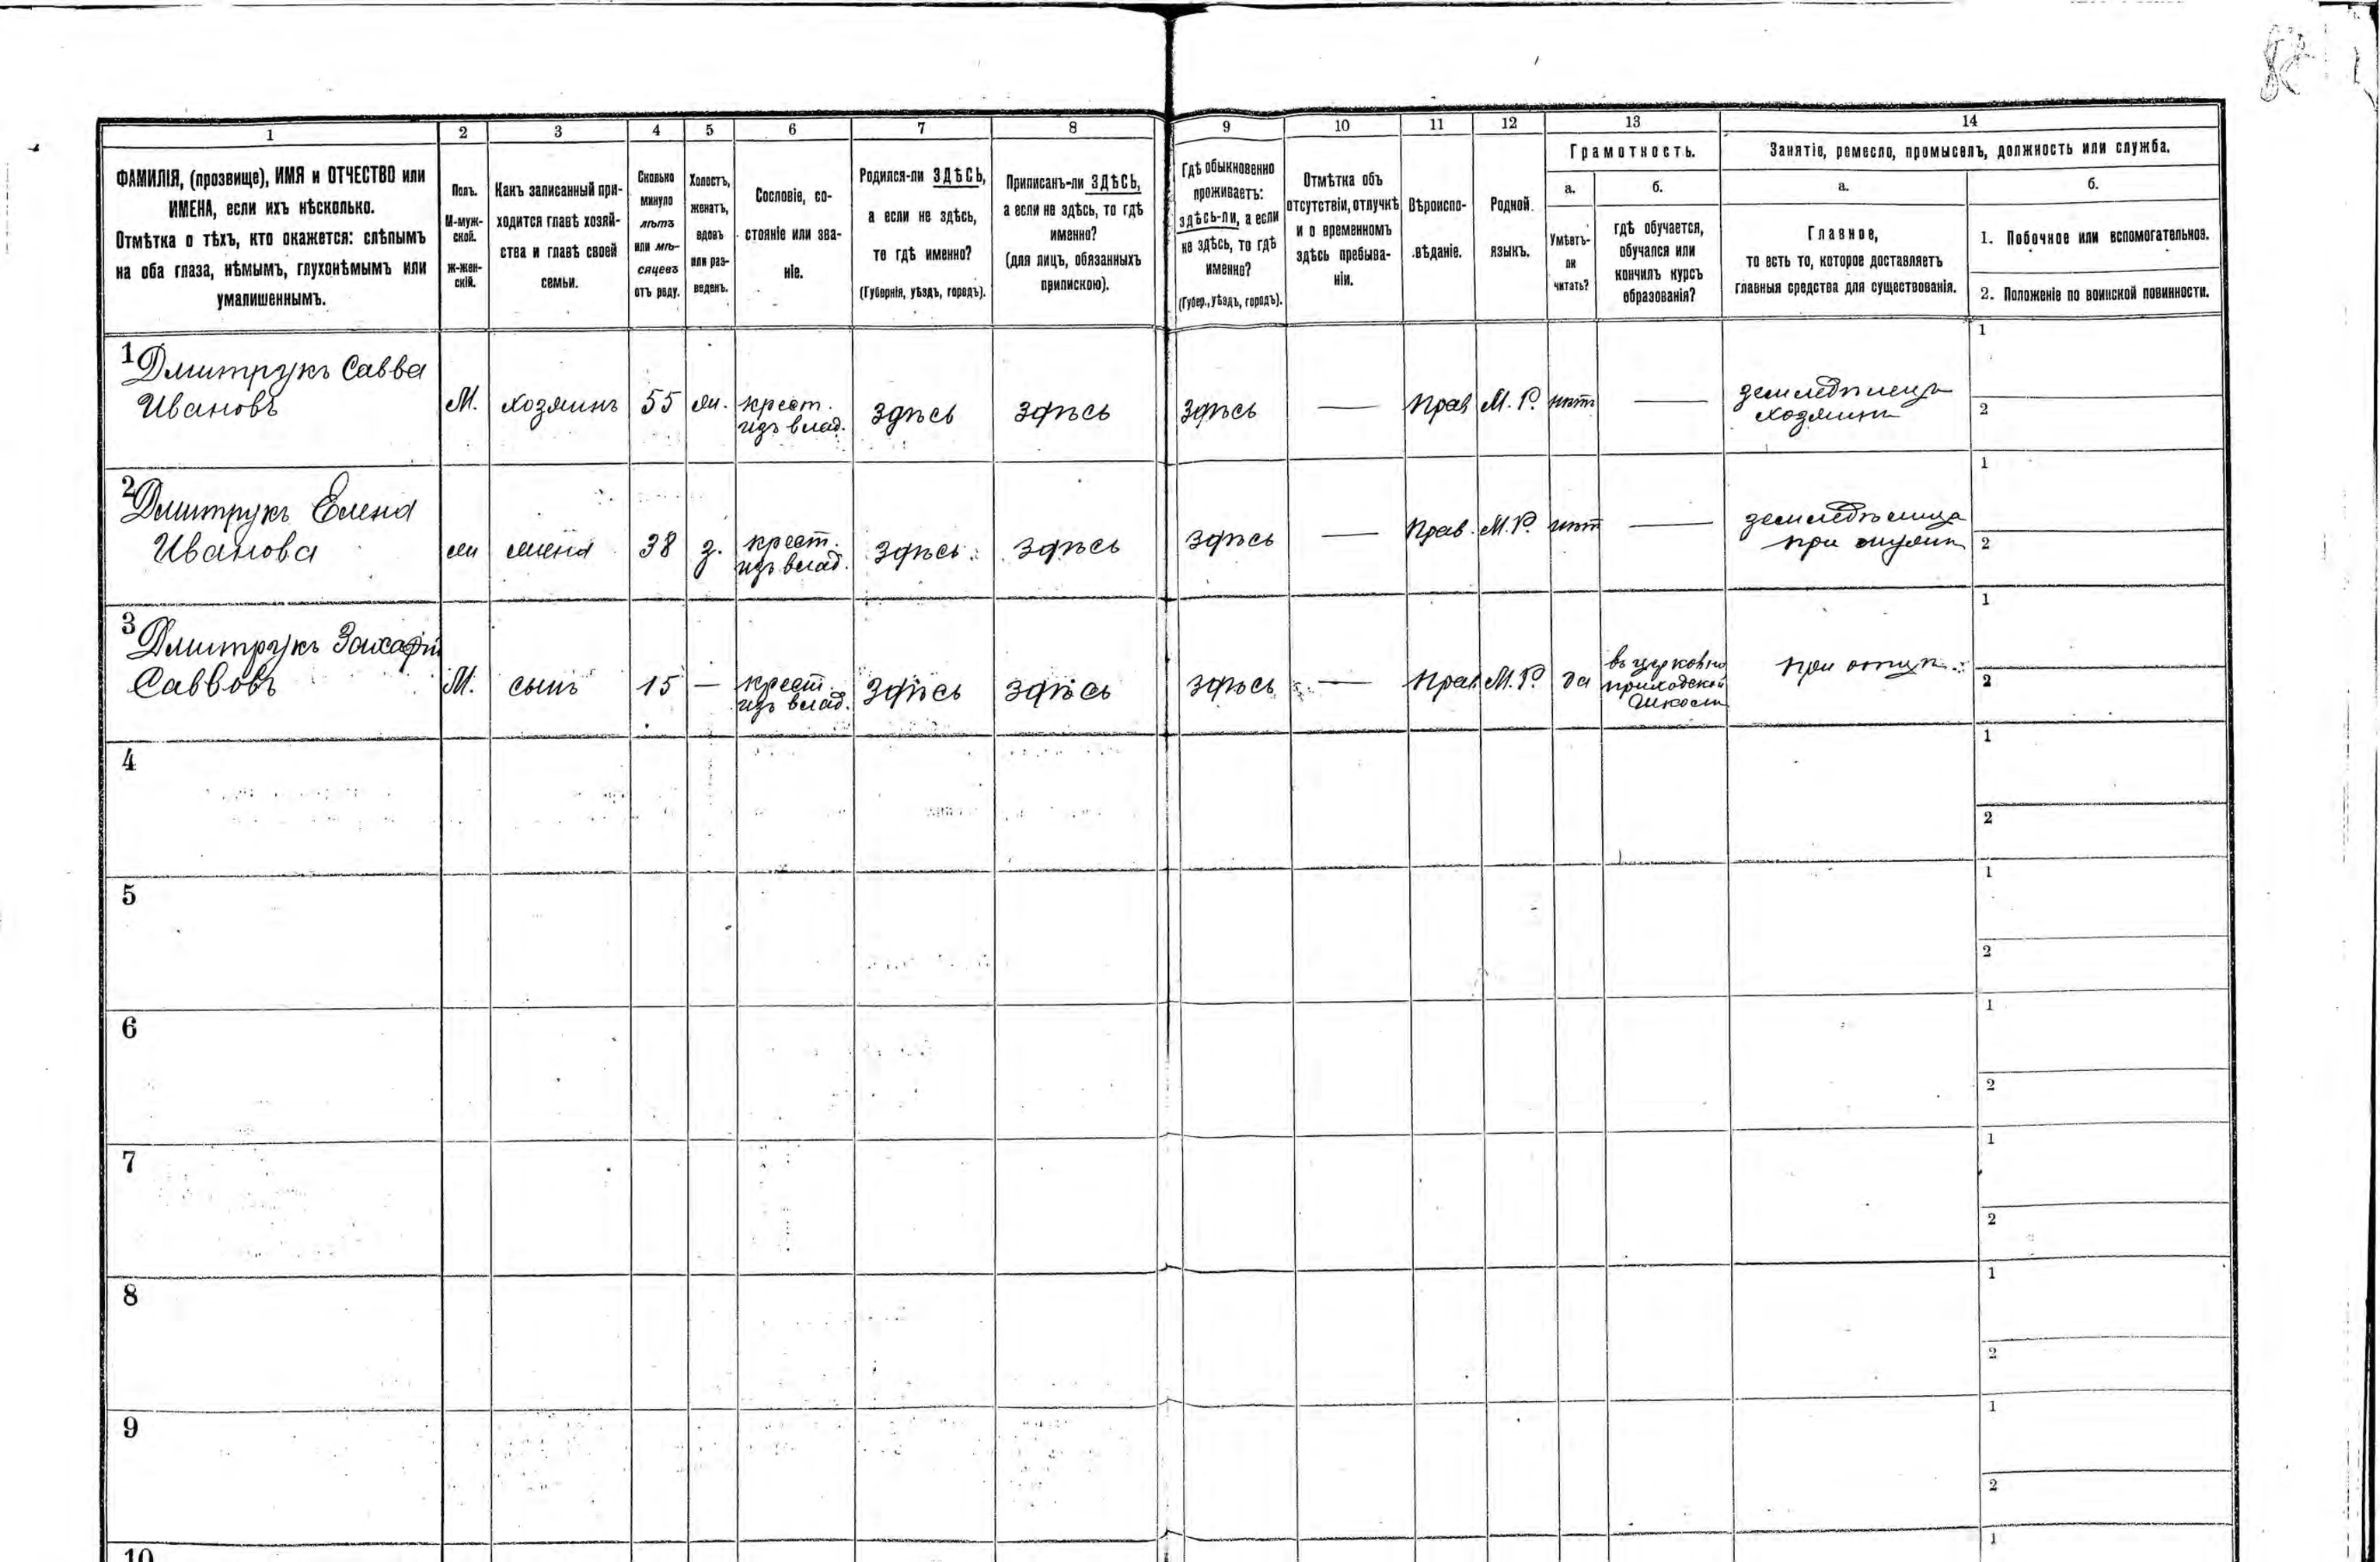 1 2 3 4 5 6 7 8 9 10 11 12 13 14
ФАМИЛІЯ, (прозвище), ИМЯ и ОТЧЕСТВО или
ИМЕНА, если ихъ нѣсколько.
Отмѣтка о тѣхъ, кто окажется: слѣпымъ
на оба глаза, нѣмымъ, глухонѣмымъ или
умалишеннымъ.
Полъ.
М-муж-
ской.
ж-жен-
скій.
Какъ записанный при-
ходится главѣ хозяй-
ства и главѣ своей
семьи.
Сколько
минуло
лѣтъ
или мѣ-
сяцевъ
отъ роду.
Холостъ,
женатъ,
вдовъ
или раз-
веденъ.
Сословіе, со-
стояніе или зва-
ніе.
Родился-ли ЗДѢСЬ,
а если не здѣсь,
то гдѣ именно?
(Губернія, уѣздъ, городъ).
Приписанъ-ли ЗДѢСЬ,
а если не здѣсь, то гдѣ
именно?
(для лицъ, обязанныхъ
припискою).
Гдѣ обыкновенно
проживаетъ:
здѣсь-ли, а если
не здѣсь, то гдѣ
именно?
(Губер., уѣздъ, городъ).
Отмѣтка объ
отсутствіи, отлучкѣ
и о временномъ
здѣсь пребыва-
ніи.
Вѣроиспо-
вѣданіе.
Родной
языкъ.
Грамотность.
а.
Умѣетъ-
ли
читать?
б.
гдѣ обучается,
обучался или
кончилъ курсъ
образованія?
Занятіе, ремесло, промыселъ, должность или служба.
а.
Главное,
то есть то, которое доставляетъ
главныя средства для существованія.
б.
1. Побочное или вспомогательное.
2. Положеніе по воинской повинности.
1
Дмитрукъ Савва
Ивановъ
М.
хозяинъ
55
ж.
крест.
изъ влад.
здѣсь
здѣсь
здѣсь
—
прав
М. Р.
нѣт
—
земледѣлецъ
хозяинъ
1
2
2
Дмитрукъ Елена
Иванова
ж
жена
38
з.
крест.
изъ влад.
здѣсь
здѣсь
здѣсь
—
прав.
М. Р.
нѣт
—
земледѣлица
при мужѣ
1
2
3
Дмитрукъ Захарій
Саввовъ
М.
сынъ
15
—
крест
изъ влад.
здѣсь
здѣсь
здѣсь
—
прав
М. Р.
да
въ церковно
приходской
школѣ
при отцѣ
1
2
4
1
2
5
1
2
6
1
2
7
1
2
8
1
2
9
1
2
10
1